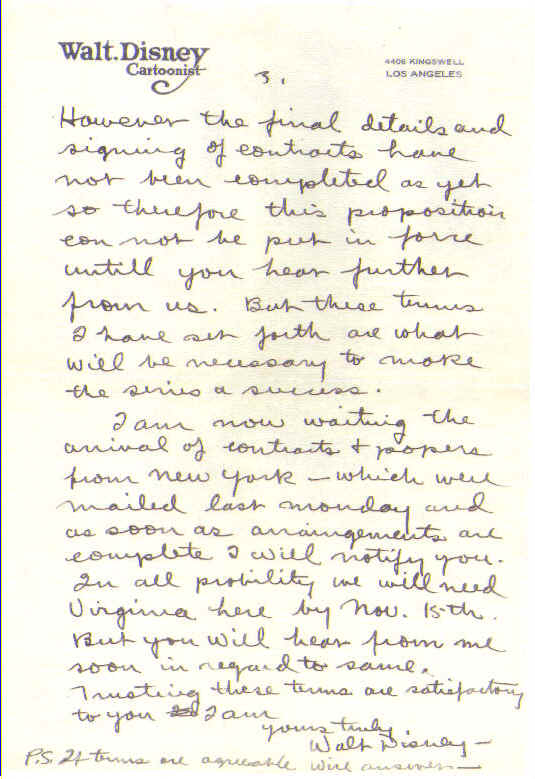 Walt. Disney
Cartoonist
4406 KINGSWELL
LOS ANGELES
3.
However the final details and
signing of contracts have
not been completed as yet
so therefore this proposition
can not be put in force
untill you hear further
from us. But these terms
I have set forth are what
will be necessary to make
the series a success.
I am now waiting the
arrival of contracts & papers
from New York – which were
mailed last monday and
as soon as arraingements are
complete I will notify you.
In all probility we will need
Virginia here by Nov. 15-th.
But you will hear from me
soon in regard to same.
Trusting these terms are satisfactory
to you I am
yours truly,
Walt Disney –
P.S. If terms are agreeable wire answer —